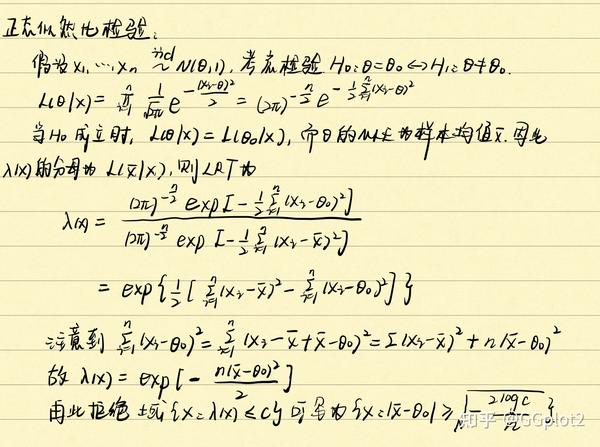 正态似然比检验:
假设 x₁,⋯,xₙ iid~ N(θ,1), 考虑检验 H₀: θ=θ₀ ↔ H₁: θ≠θ₀.
L(θ|x) = ∏ᵢ₌₁ⁿ 1/√(2π) e^{-(xᵢ-θ)²/2} = (2π)^{-n/2} e^{-½∑ᵢ₌₁ⁿ(xᵢ-θ)²}
当H₀成立时, L(θ|x) = L(θ₀|x), 而θ的MLE为样本均值x̄. 因此
λ(x)的分母为 L(x̄|x), 则LRT为
λ(x) = (2π)^{-n/2} exp[-½∑ᵢ₌₁ⁿ(xᵢ-θ₀)²] / (2π)^{-n/2} exp[-½∑ᵢ₌₁ⁿ(xᵢ-x̄)²]
= exp{½[∑ᵢ₌₁ⁿ(xᵢ-x̄)² - ∑ᵢ₌₁ⁿ(xᵢ-θ₀)²]}
注意到 ∑ᵢ₌₁ⁿ(xᵢ-θ₀)² = ∑ᵢ₌₁ⁿ(xᵢ-x̄+x̄-θ₀)² = ∑(xᵢ-x̄)² + n(x̄-θ₀)²
故 λ(x) = exp[-n(x̄-θ₀)²/2]
因此拒绝域{x: λ(x) ≤ c}可写为{x: |x̄-θ₀| ≥ √(-2log c/n)}
知乎 @GGplot2